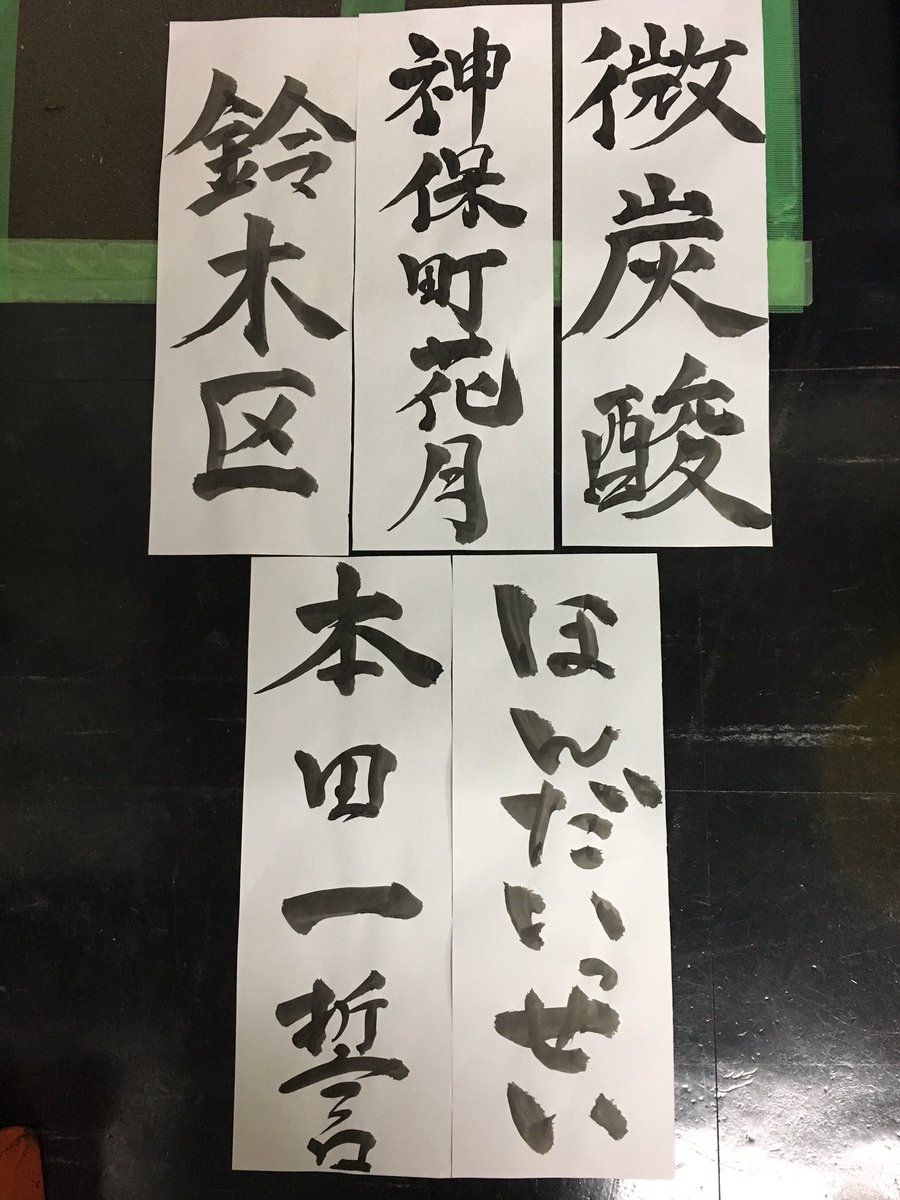 微炭酸
神保町花月
鈴木区
ほんだいっせい
本田一誓